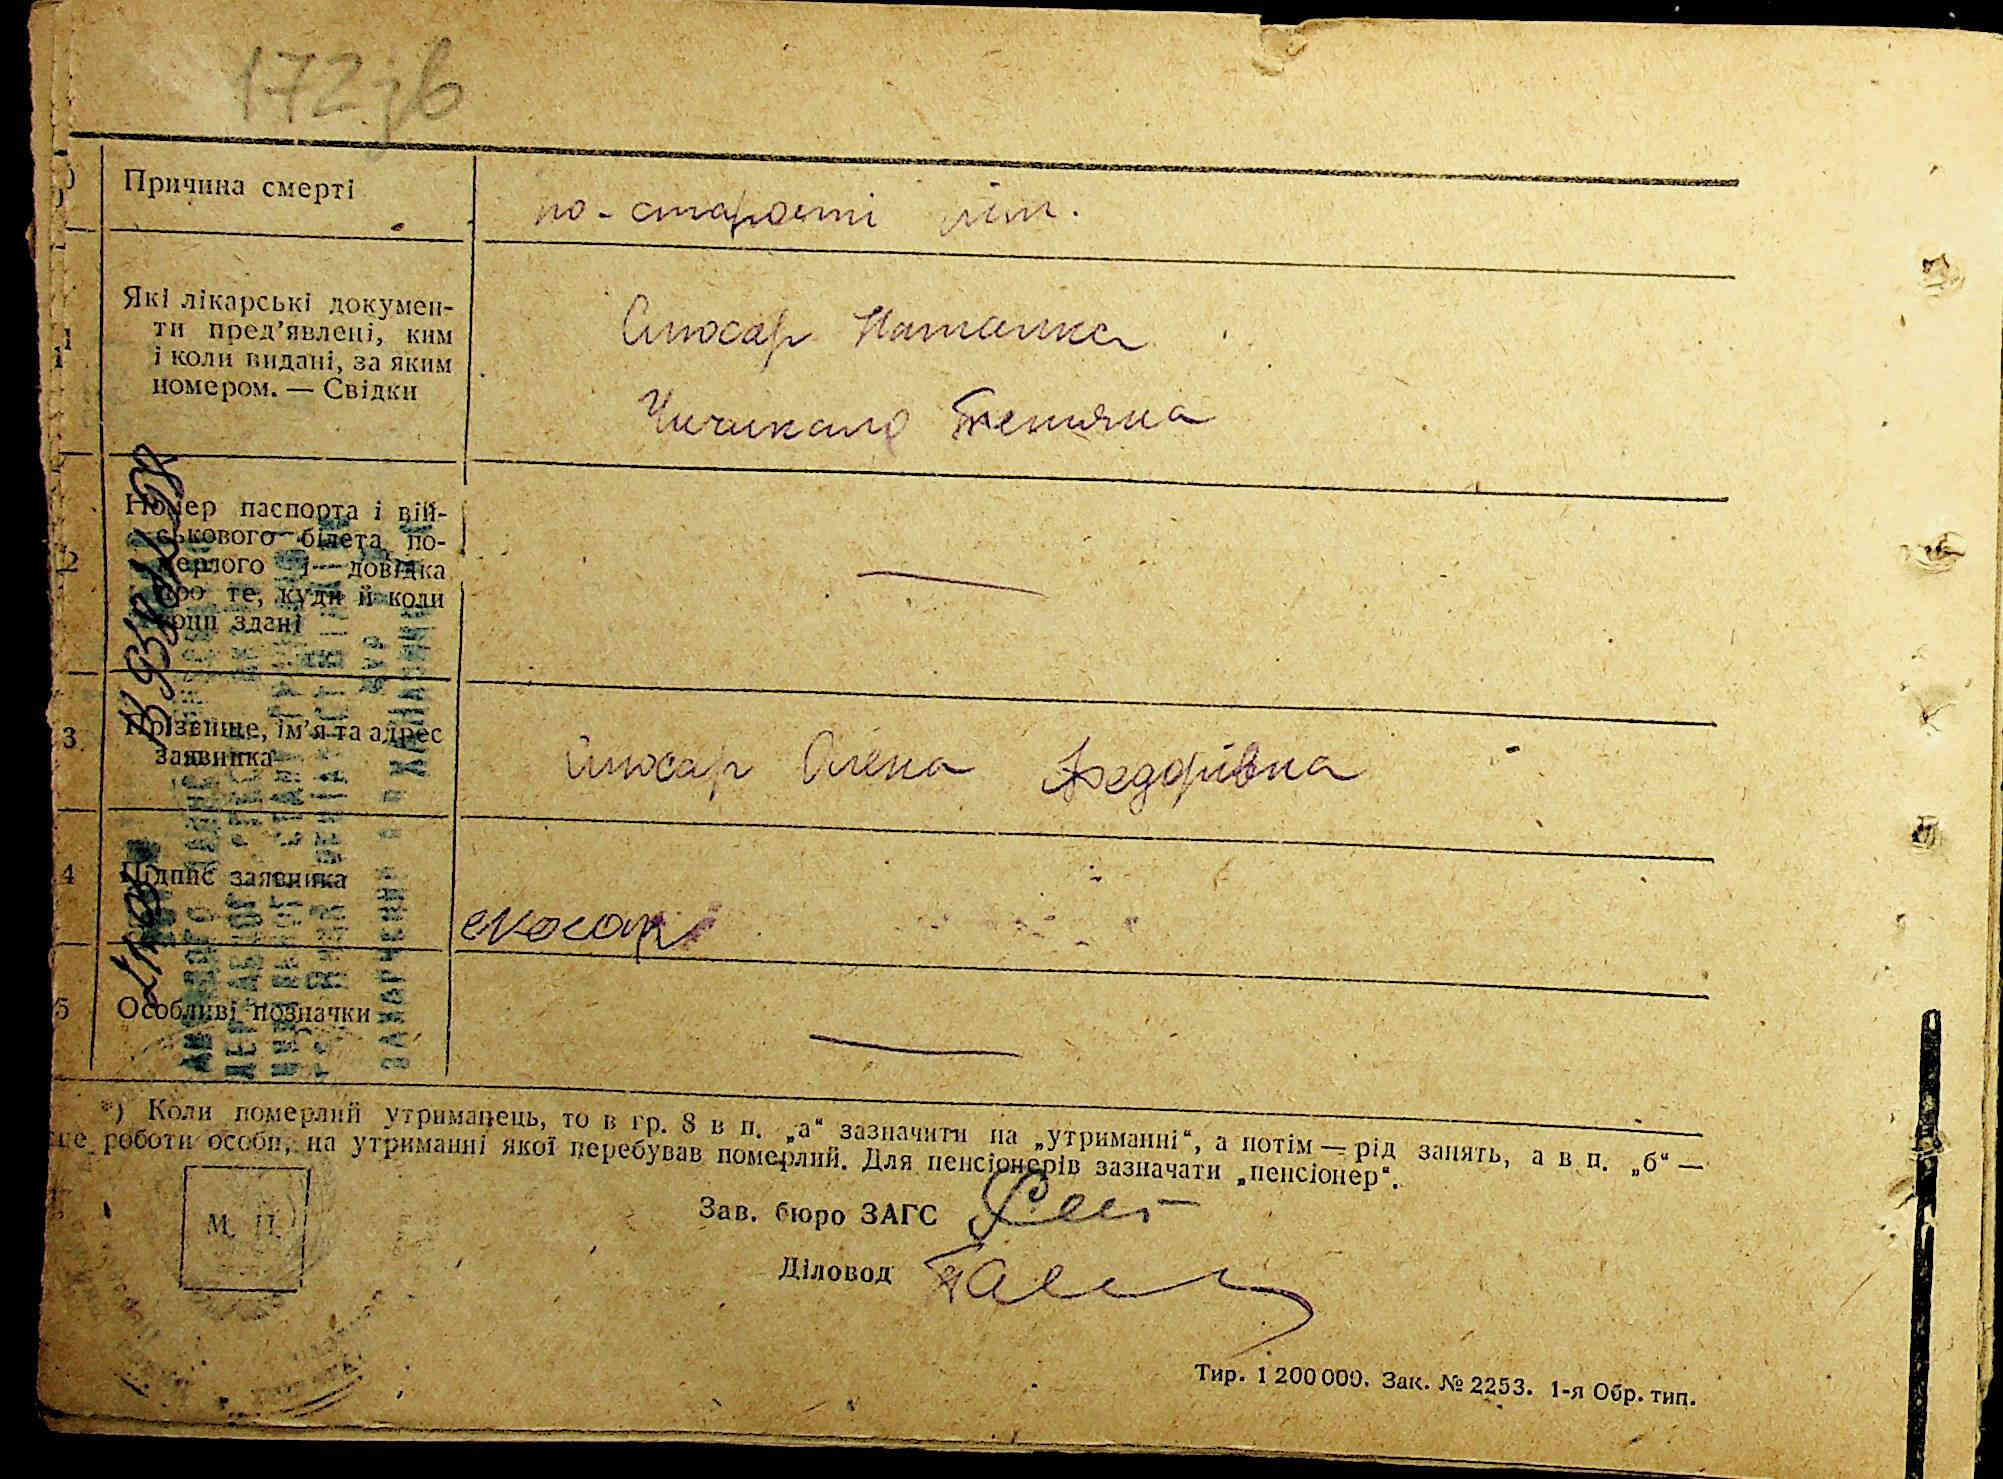 172 зв
Причина смерті
по-старості літ.
Які лікарські докумен-
ти пред'явлені, ким
і коли видані, за яким
номером. — Свідки
11
Слюсар Наталка
Чичикало Тетяна
Номер паспорта і вій-
ськового білета по-
мерлого і довідка
про те, куди й коли
вони здані
2
—
3
Прізвище, ім'я та адрес
заявника
Слюсар Олена Федорівна
4
Підпис заявника
слюсар
5
Особливі позначки
—
*) Коли померлий утриманець, то в гр. 8 в п. „а“ зазначити на „утриманні“, а потім — рід занять, а в п. „б“ —
це роботи особи, на утриманні якої перебував померлий. Для пенсіонерів зазначати „пенсіонер“.
М. П.
Зав. бюро ЗАГС
Діловод
Тир. 1 200 000. Зак. № 2253. 1-я Обр. тип.